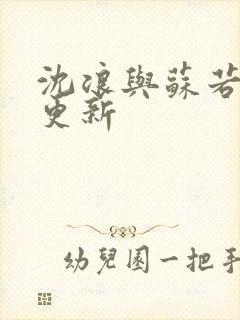 沈浪與蘇若
更新
幼兒園一把手